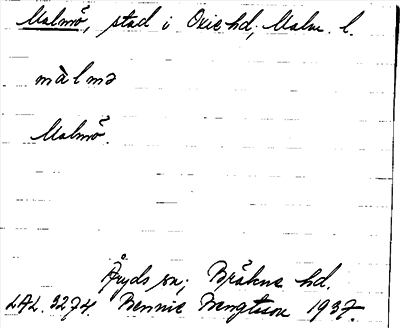 Malmö, stad i Oxie hd, Malm. l.
màlmə
Malmö.
Åryds sn, Bräkne hd.
LAL. 3274. Bennie Bengtsson 1937.